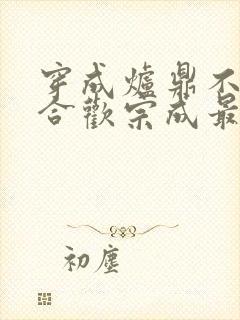 穿成爐鼎不
合歡宗成最
初塵